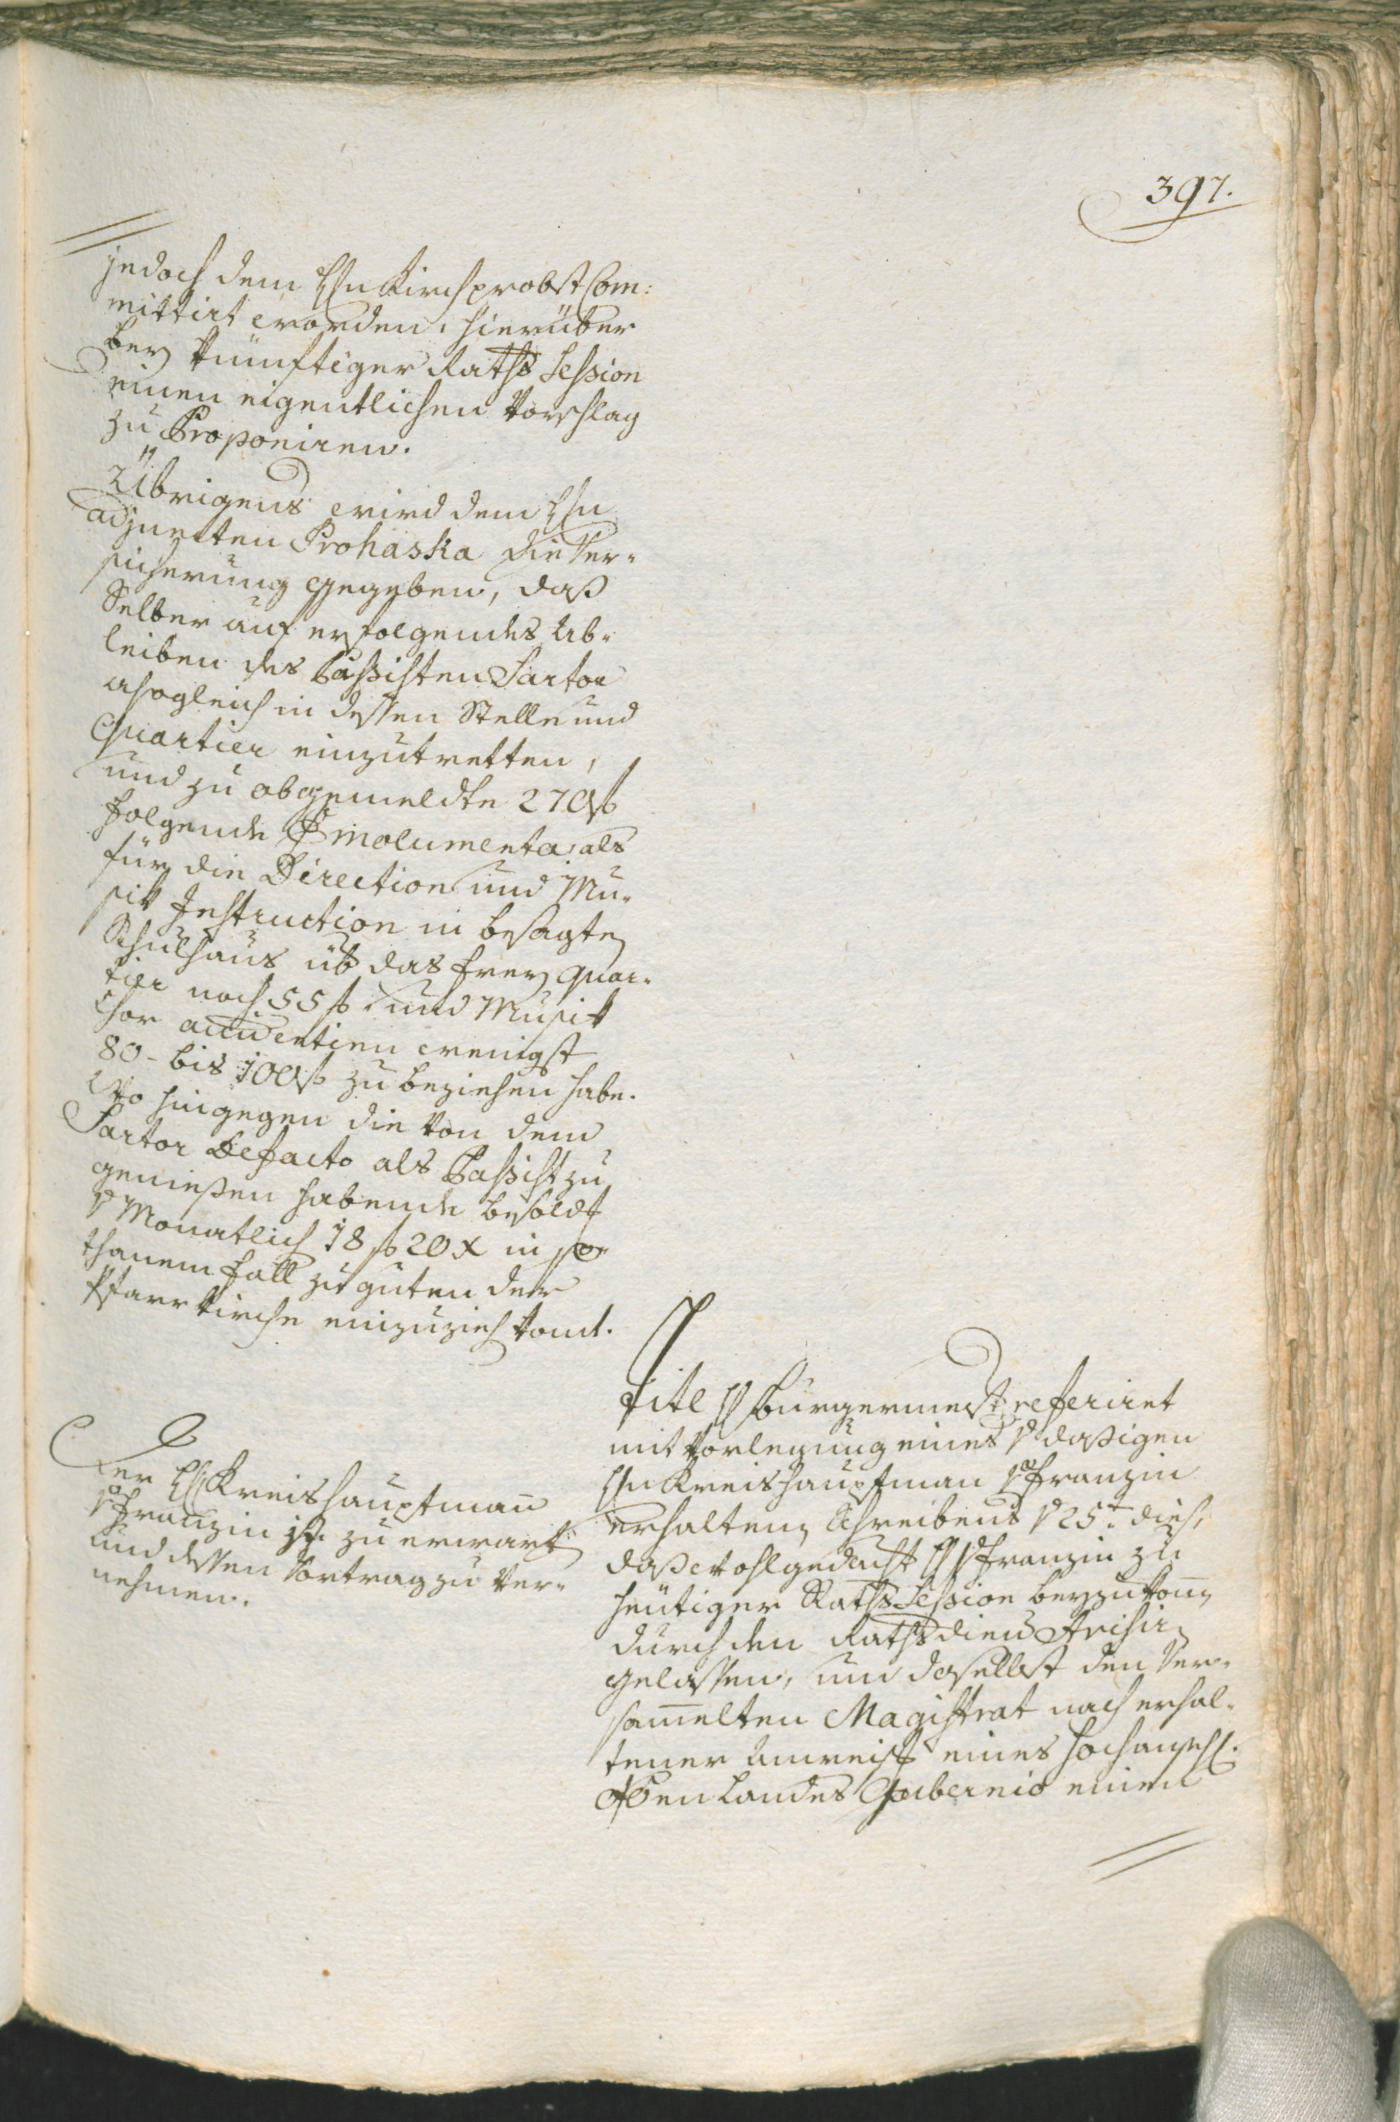 397.
jedoch dem Hn Kirchprobst Com:
mittirt worden, hierüber
bey künftiger Raths Session
einen eigentlichen Vorschlag
zu Proponiren.
Übrigens wird dem Hn
adjuncten Prohaska die Ver-
sicherung gegeben, daß
Selber auf erfolgendes Ab-
leiben des Bassisten Sartor
alsogleich in dessen Stelle und
Quartier einzutretten,
und zu obgemeldte 270 f
folgende Emolumenta, als
für die Direction und Mu-
sik Instruction in besagten
Schulhaus üb das freÿ Quar-
tier noch 55 f. und Musik
Chor accidentien wenigst
80 - bis 100 f zu beziehen habe.
Wo hingegen die von dem
Sartor Defacto als Bassist zu
genießen habende besold
Monatlich 18 f 20 x in so
thanem fall zu guten der
Pfarrkirche einzuzieh komt.
Der H Kreishauptmañ
v Franzin ist zu erwart
und dessen Vortrag zu ver-
nehmen.
Tite H Burgermeist referiret
mit Vorlegung eines v dasigen
Hn Kreishauptman v Franzin
erhaltenen Schreibens v 25t dies,
daß wohlgedacht H v Franzin zu
heutiger Raths Session beyzukom̄en
durch den Rathsdiener Avisiren
gelassen, um daselbst den Ver-
sam̄elten Magistrat nach erhal-
tener Anweis eines hochansehl.
Landes Gubernio einen